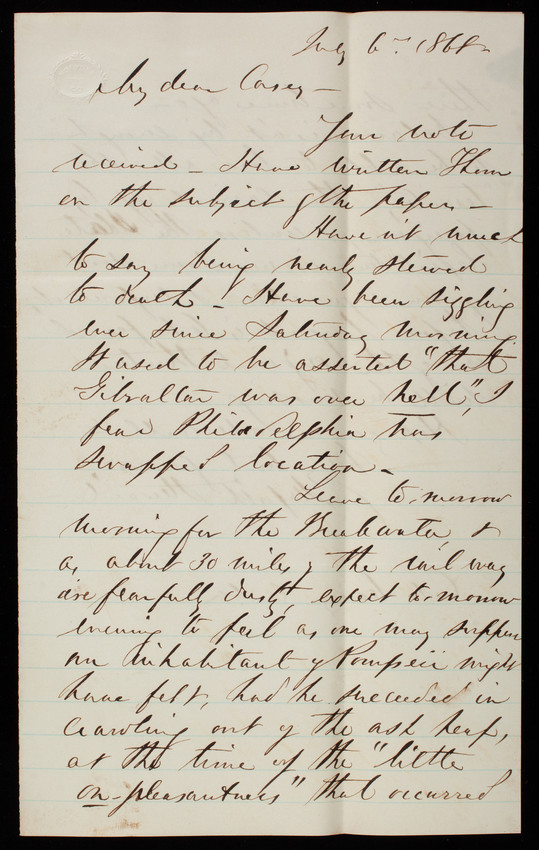 July 6th 1868
My dear Casey –
Your note
received – Have written Thom
on the subject of the papers –
Have n't much
to say being nearly stewed
to death – Have been sizzling
ever since Saturday morning.
It used to be asserted "that
Gibraltar was over hell," I
fear Philadelphia has
swapped location –
Leave to-morrow
morning for the Breakwater, &
as about 30 miles of the rail way
are fearfully dusty, expect to-morrow
evening to feel as one may suppose
an inhabitant of Pompeii might
have felt, had he succeeded in
crawling out of the ash heap,
at the time of the "little
on-pleasantness" that occurred